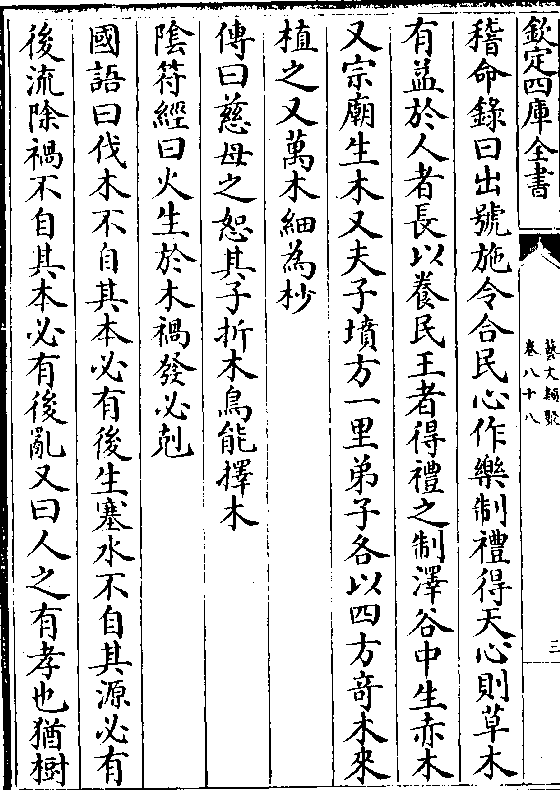 欽定四庫全書
藝文類聚
卷八十八
三
稽命錄曰出號施令合民心作樂制禮得天心則草木
有益於人者長以養民王者得禮之制澤谷中生赤木
又宗廟生木又夫子墳方一里弟子各以四方奇木來
植之又萬木細為杪
傳曰慈母之怒其子折木鳥能擇木
陰符經曰火生於木禍發必剋
國語曰伐木不自其本必有後生塞水不自其源必有
後流除禍不自其本必有後亂又曰人之有孝也猶樹